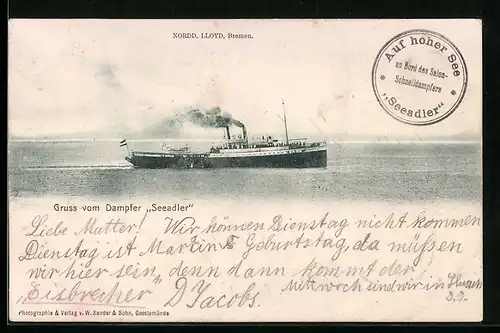 NORDD. LLOYD, Bremen.
Auf hoher See
an Bord des Salon-
Schnelldampfers
„Seeadler"
Gruss vom Dampfer „Seeadler"
Liebe Mutter! Wir können Dienstag nicht kommen
Dienstag ist Martin Geburtstag, da müßen
wir hier sein, denn dann kommt der
„Eisbrecher" D Jacobs.
Mittwoch sind wir in
Photographie & Verlag v. W. Sander & Sohn, Geestemünde.